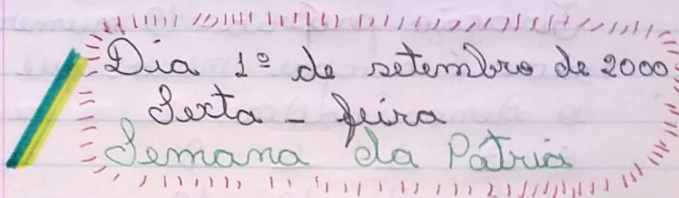 Dia 1º de setembro de 2000
Sexta - feira
Semana da Pátria